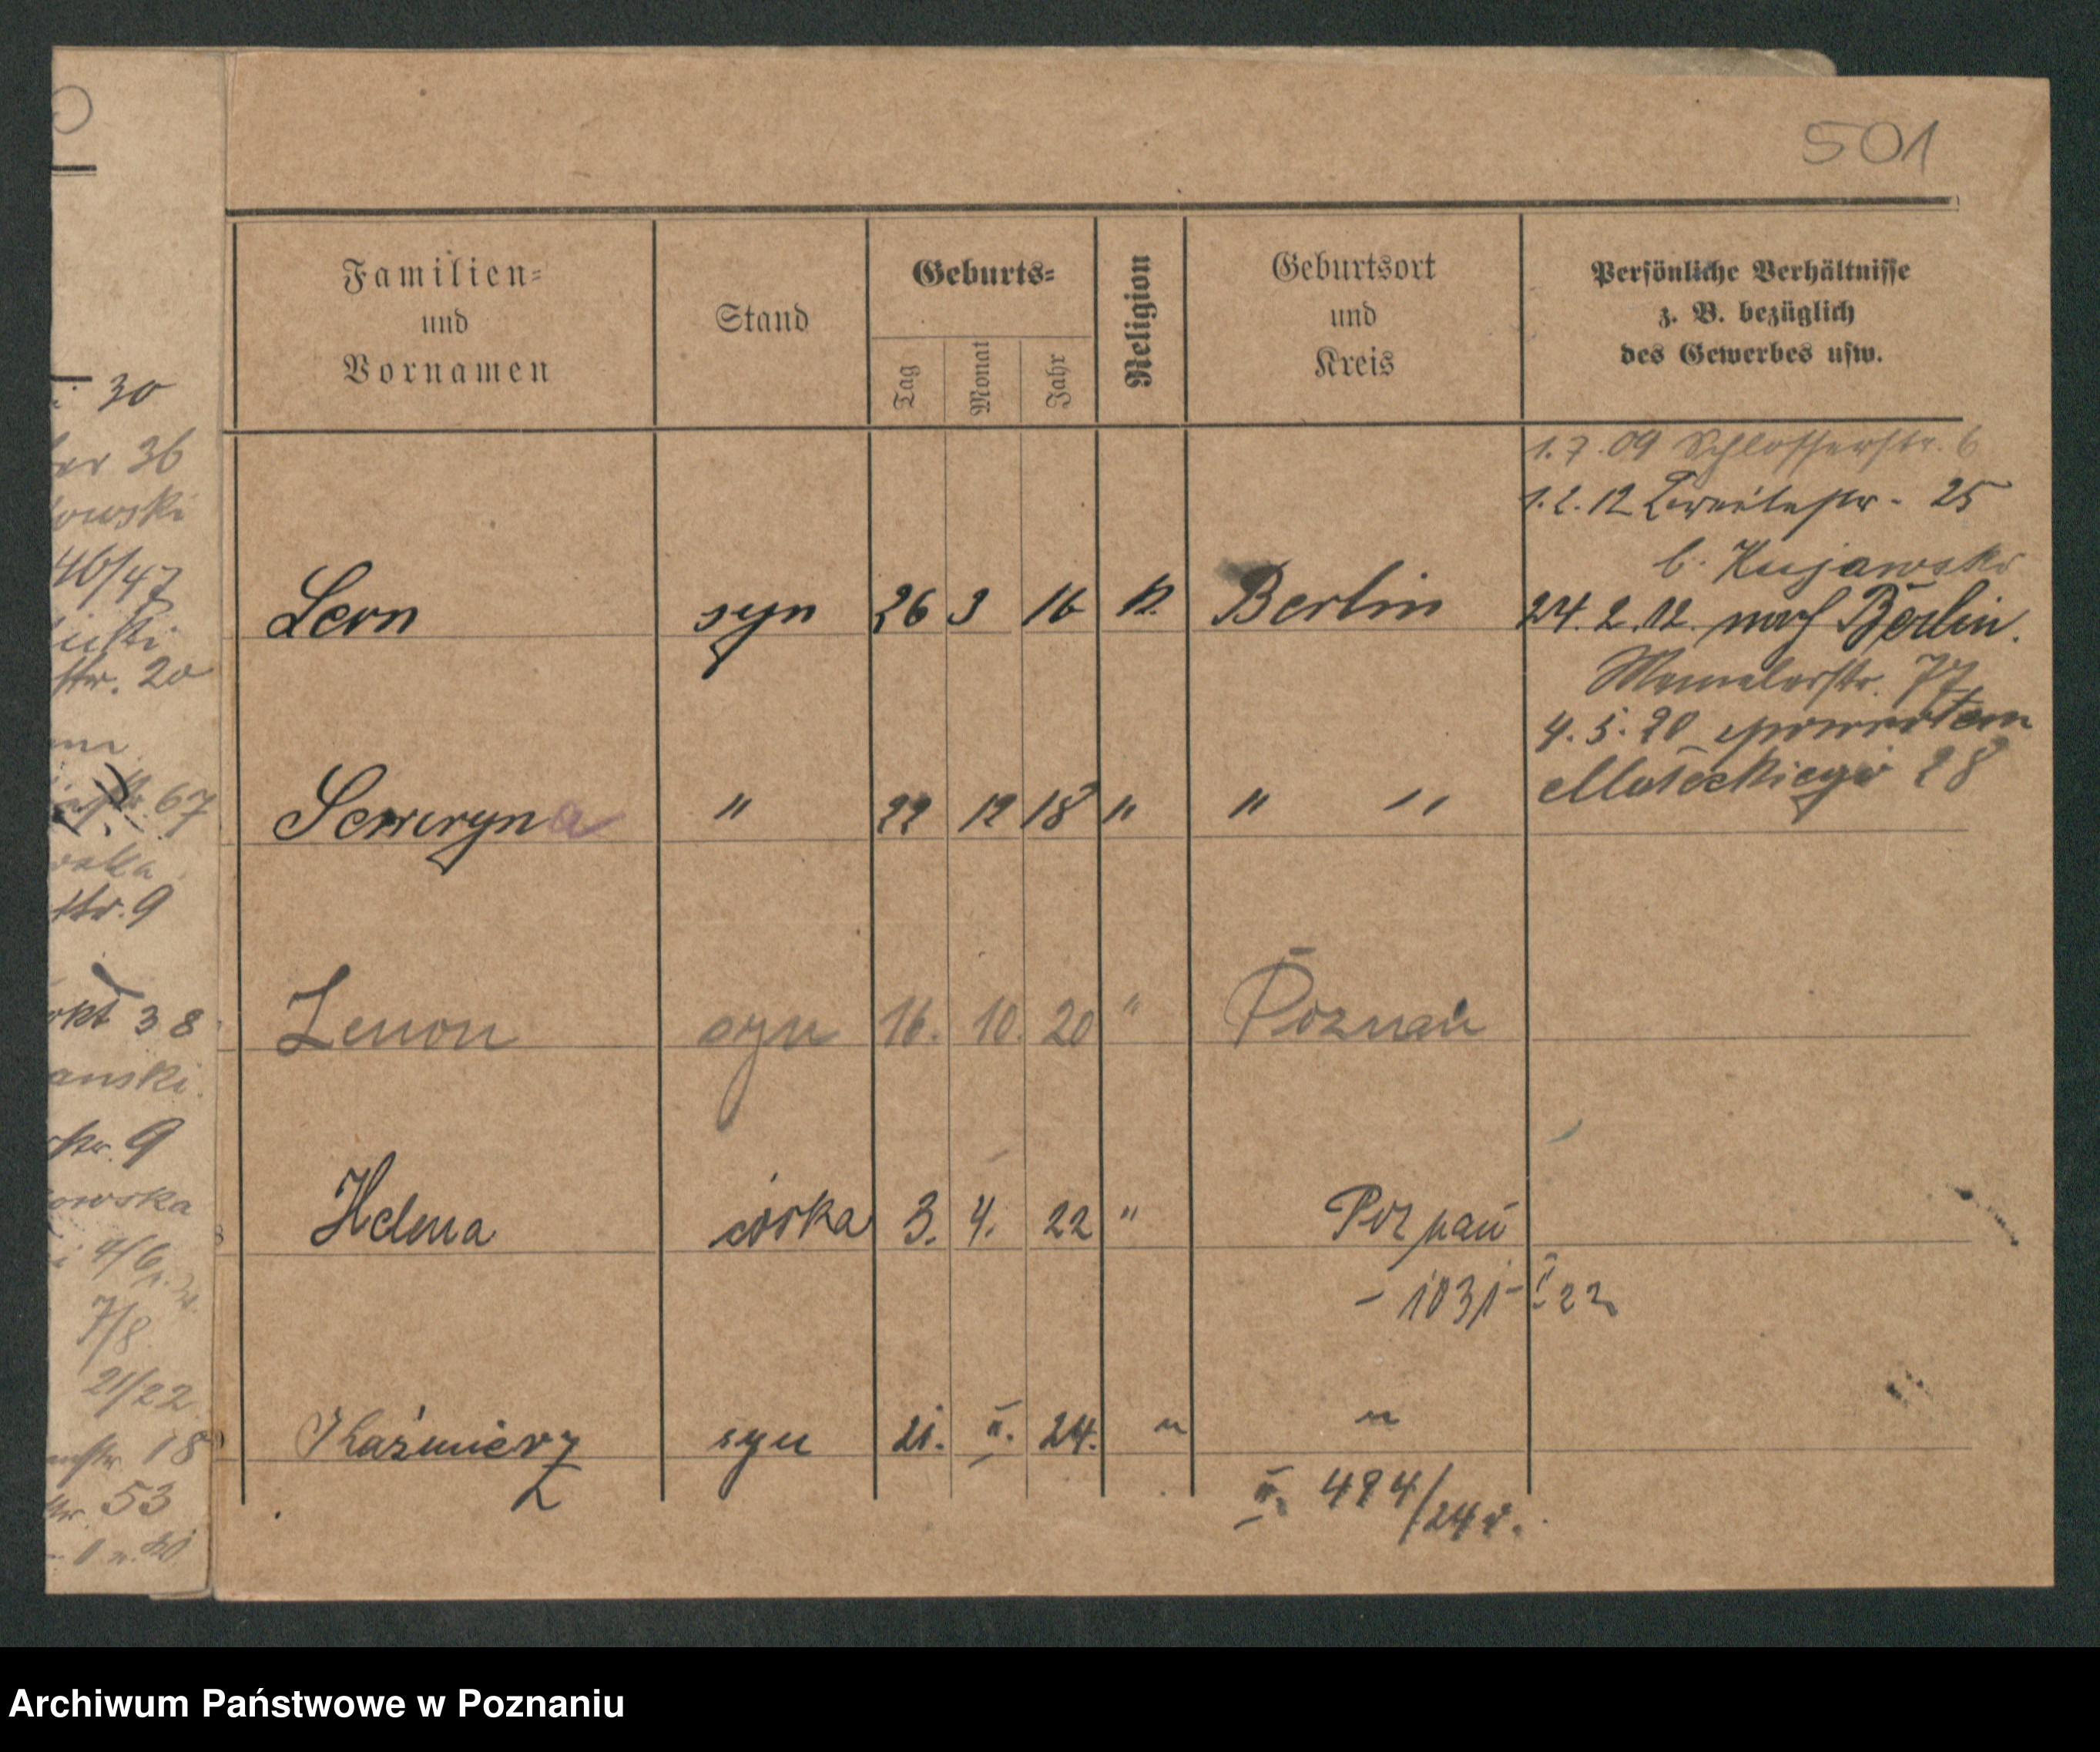 501
Familien=
und
Vornamen
Stand
Geburts=
Tag
Monat
Jahr
Religion
Geburtsort
und
Kreis
Persönliche Verhältnisse
z. B. bezüglich
des Gewerbes usw.
1.7.09 Schlosserstr. 6
1.2.12 25
b. Kujawski
Leon syn 26 3 16 k. Berlin
24.2.12. nach Berlin.
Memelerstr. 77
4.5.20 z powrotem
Małeckiego 28
Seweryna " 22 12 18 " " "
Zenon syn 16. 10. 20 " Poznań
Helena córka 3. 4. 22 " Poznań
- 1031 - 22
Kaźmierz syn 21. II. 24. " "
II. 494/24 r.
30
36
owski
46/47
str. 20
67
str. 9
rkt 38
anski.
str. 9
owska
4/6
7/8
21/22
18
53
Archiwum Państwowe w Poznaniu